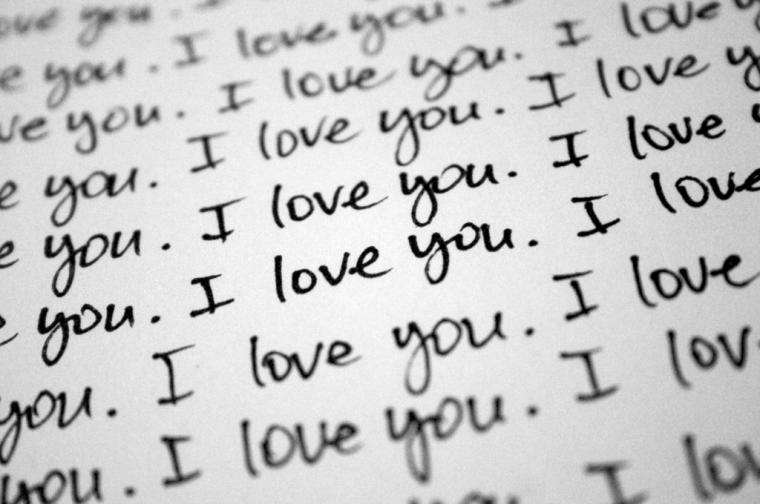 ove you .
e you . I love you . I
ve you . I love you . I love y
e you . I love you . I love y
e you . I love you . I love y
e you . I love you . I love
you . I love you . I love
you . I love you . I lov
you . I lov